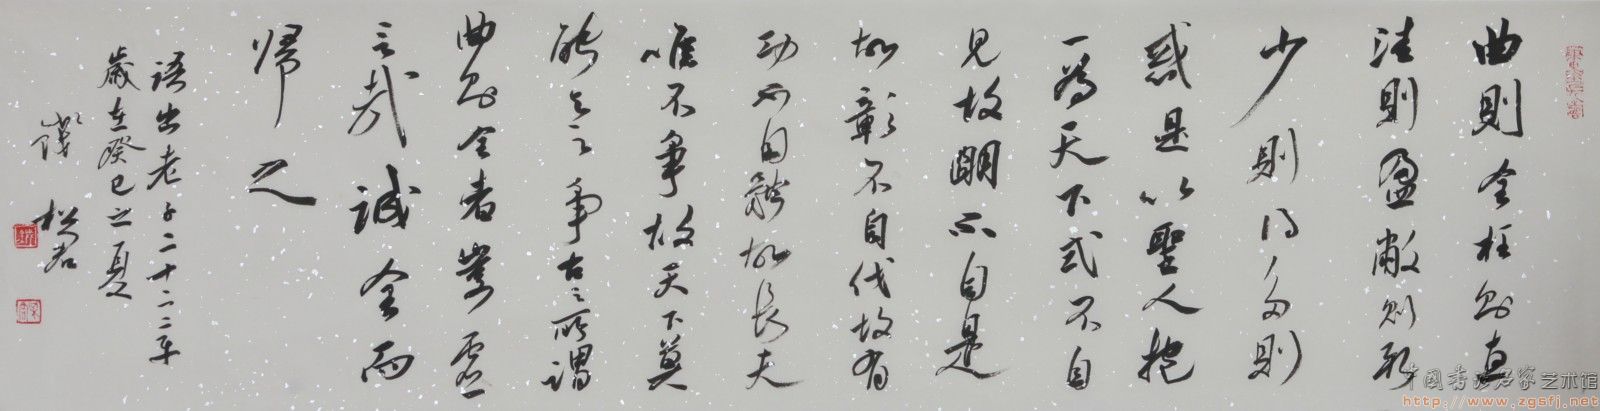 曲則全枉則直
洼則盈敝則新
少則得多則
惑是以聖人抱
一為天下式不自
見故明不自是
故彰不自伐故有
功不自矜故長夫
唯不爭故天下莫
能與之爭古之所謂
曲則全者豈虛
言哉誠全而
歸之
語出老子二十二章
歲在癸巳之夏
松君
中国书法名家艺术馆
http://www.zgsfj.net